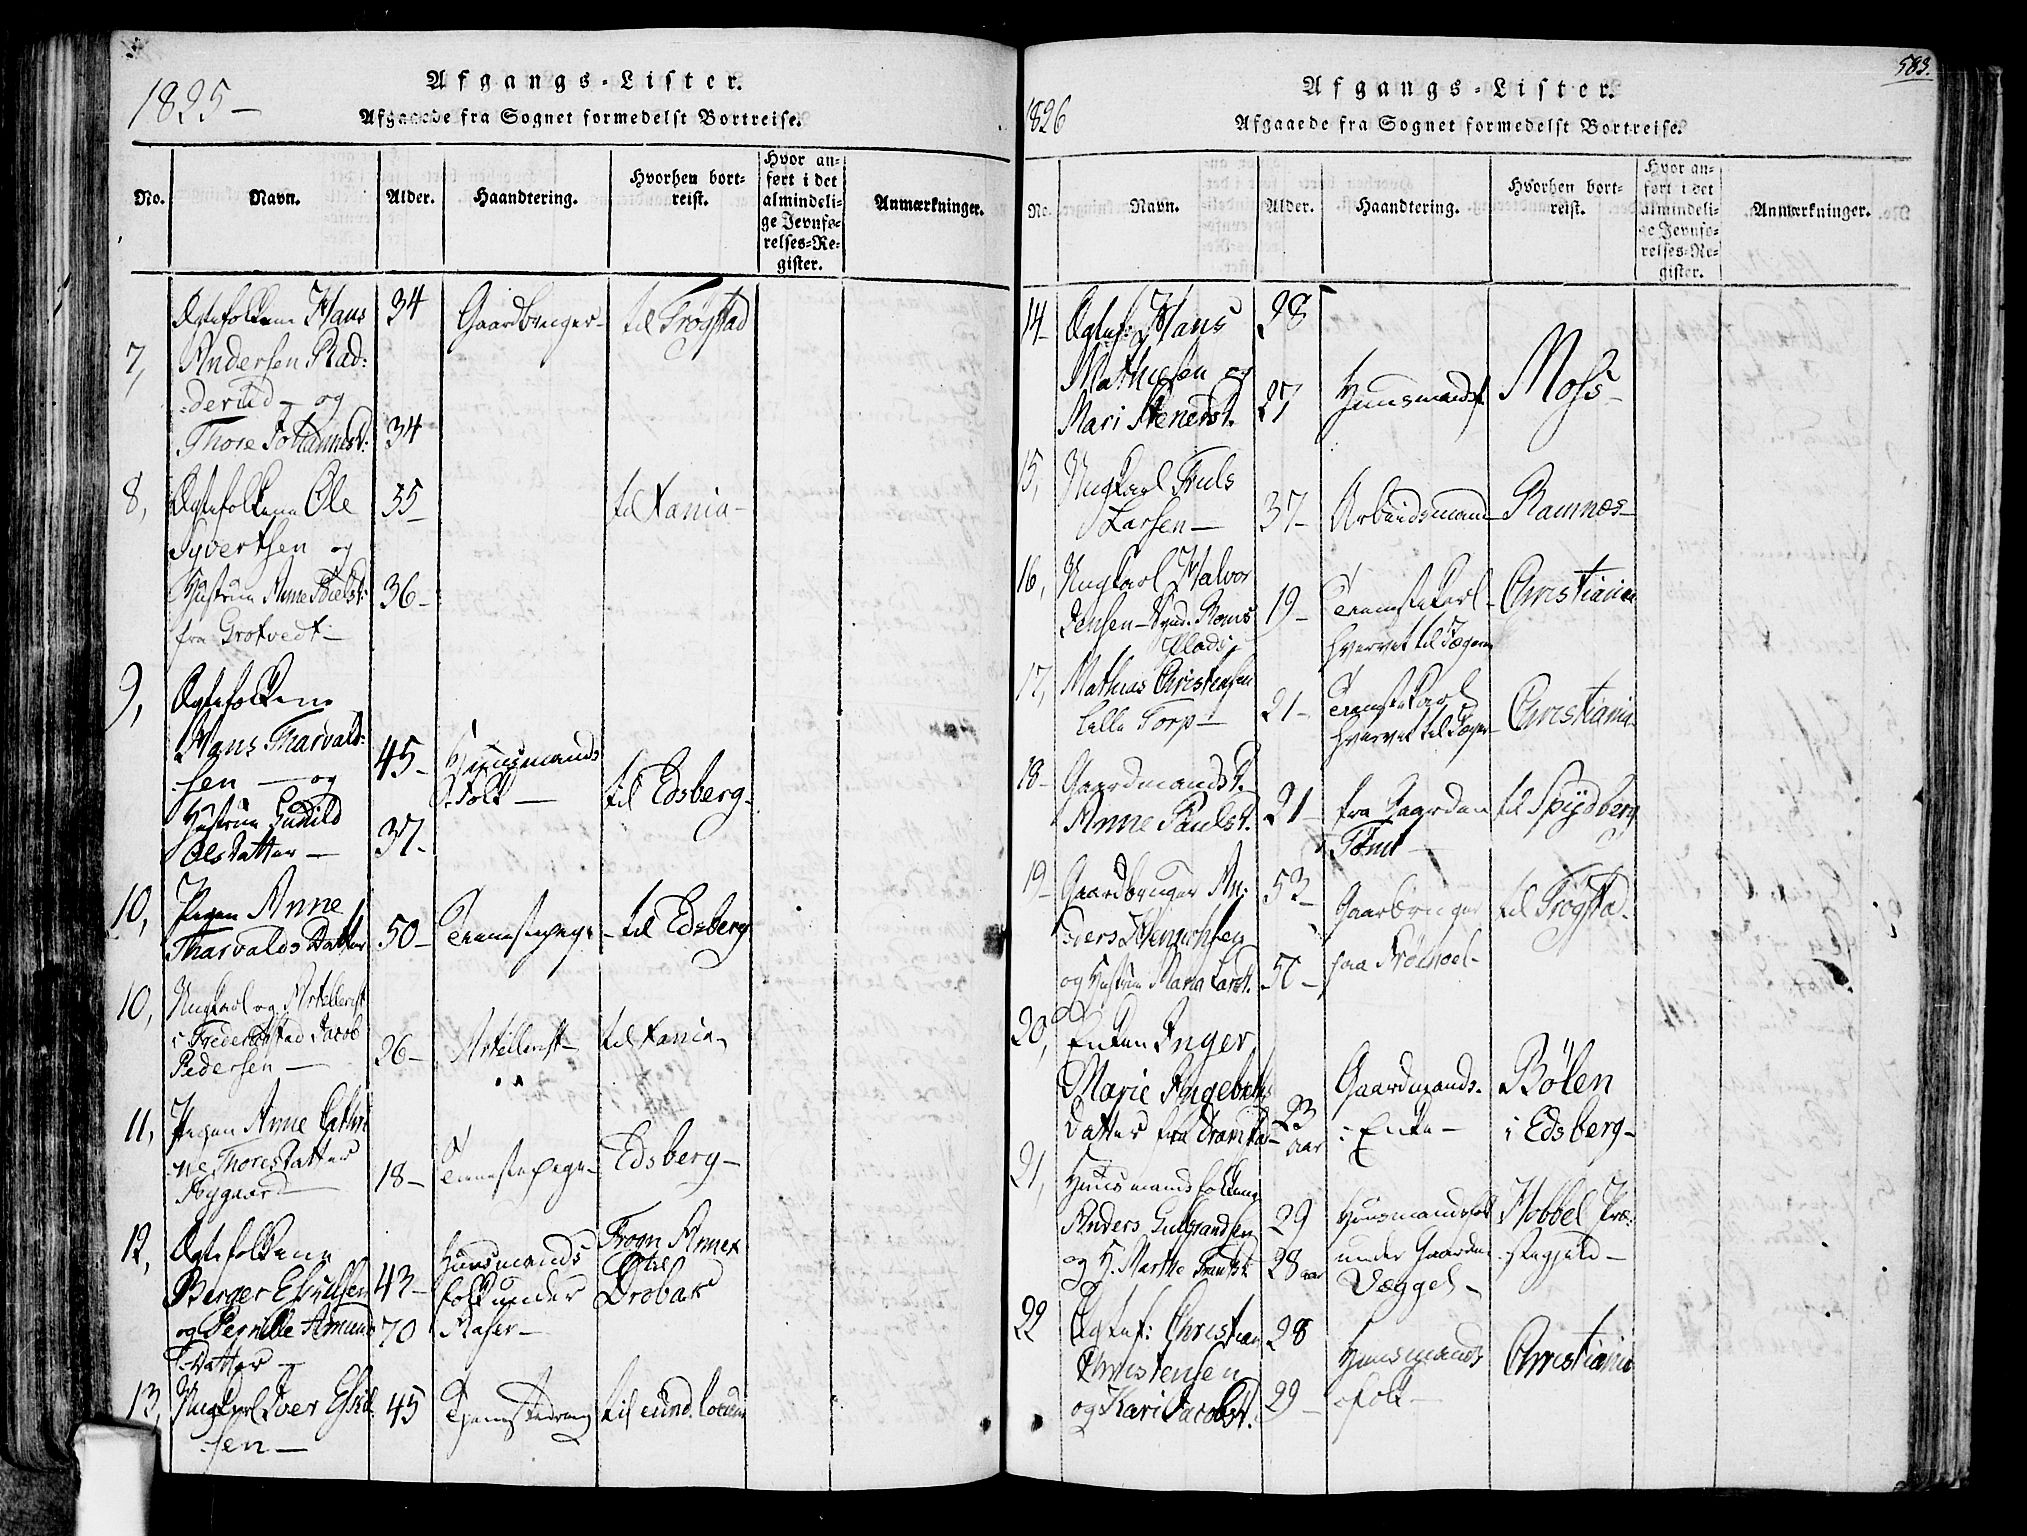 1825-
Afgangs-Lister.
Afgaaede fra Sognet formedelst Bortreise.
No.
Navn.
Alder.
Haandtering.
Hvorhen bort-
reist.
Hvor an-
ført i det
almindeli-
ge Jevnfø-
relses-Re-
gister.
Anmærkninger.
7,
Ægtefolkene Hans
Andersen Rad:
derud - og
Thore Johannesd:
34
34
Gaardbruger-
til Trøgstad
8,
Ægtefolkene Ole
Syvertsen og
Hustrue Anne
fra Grotvedt-
35-
36-
til Xania-
9,
Ægtefolkene
Hans Tharvald:
sen - og
Hustrue Gunild
Olsdatter -
45-
37-
Huusmands
Folk -
til Edsberg-
10,
Pigen Anne
Tharvalds Datter
50-
Tienestepige
- til Edsberg
10,
Ungkarl og Artillerist
i Frederikstad Jacob
Pedersen -
26-
Artillerist-
til Xania-
11,
Pigen Anne Cathri
-ne Thoresdatter
Nygaard
18-
Tienestepige-
Edsberg-
12,
Ægtefolkene
Berger Eskildsen
og Pernille Amunds
Datter -
43-
70
Huusmands
folk under
Raser-
Frogn Annex
til
Drøbak
13,
Ungkarl Iver Eskild
sen -
45
Tjenestedreng
til eund. locum
583.
1826
Afgangs-Lister.
Afgaaede fra Sognet formedelst Bortreise.
No.
Navn.
Alder.
Haandtering.
Hvorhen bort-
reist.
Hvor an-
ført i det
almindeli-
ge Jevnfø-
relses-Re-
gister.
Anmærkninger.
14-
Ægtef: Hans
Mathiesen og
Mari Stenersd.
28
27
Huusmandsf
Moss-
15,
Ungkarl Truls
Larsen -
37-
Arbeidsmand
Ramnes-
16,
Ungkarl Halvor
Jensen
19-
Tienestekarl-
hvervet til Jægern
Christiania
17,
Mathias Christensen
Lille Torp-
21-
Tienestekarl
hvervet til Jæger-
Christiania
18-
Gaardmandsd.
Anne Paulsd.
21-
fra Gaarden
Tomt-
til Spydberg
19-
Gaardbruger An:
ders Henrichsen
og Hustrue Maria Larsd.
53-
50-
Gaarbruger
paa
til Trøgstad-
20,
Enken Inger
Marie Ingebrets
Datter fra
23
aar
Gaardmands-
Enke-
Bølen
i Edsberg-
21,
Huusmandsfolkene
Anders Gulbrandsen
og H. Marthe
29
28 aar
Huusmandsfolk
under Gaarden
Væggel-
Hobbel Præ:
stegjeld-
22
Ægtef: Christian
Christensen
og Kari Jacobsd.
28
29-
Huusmands
folk-
Christiania